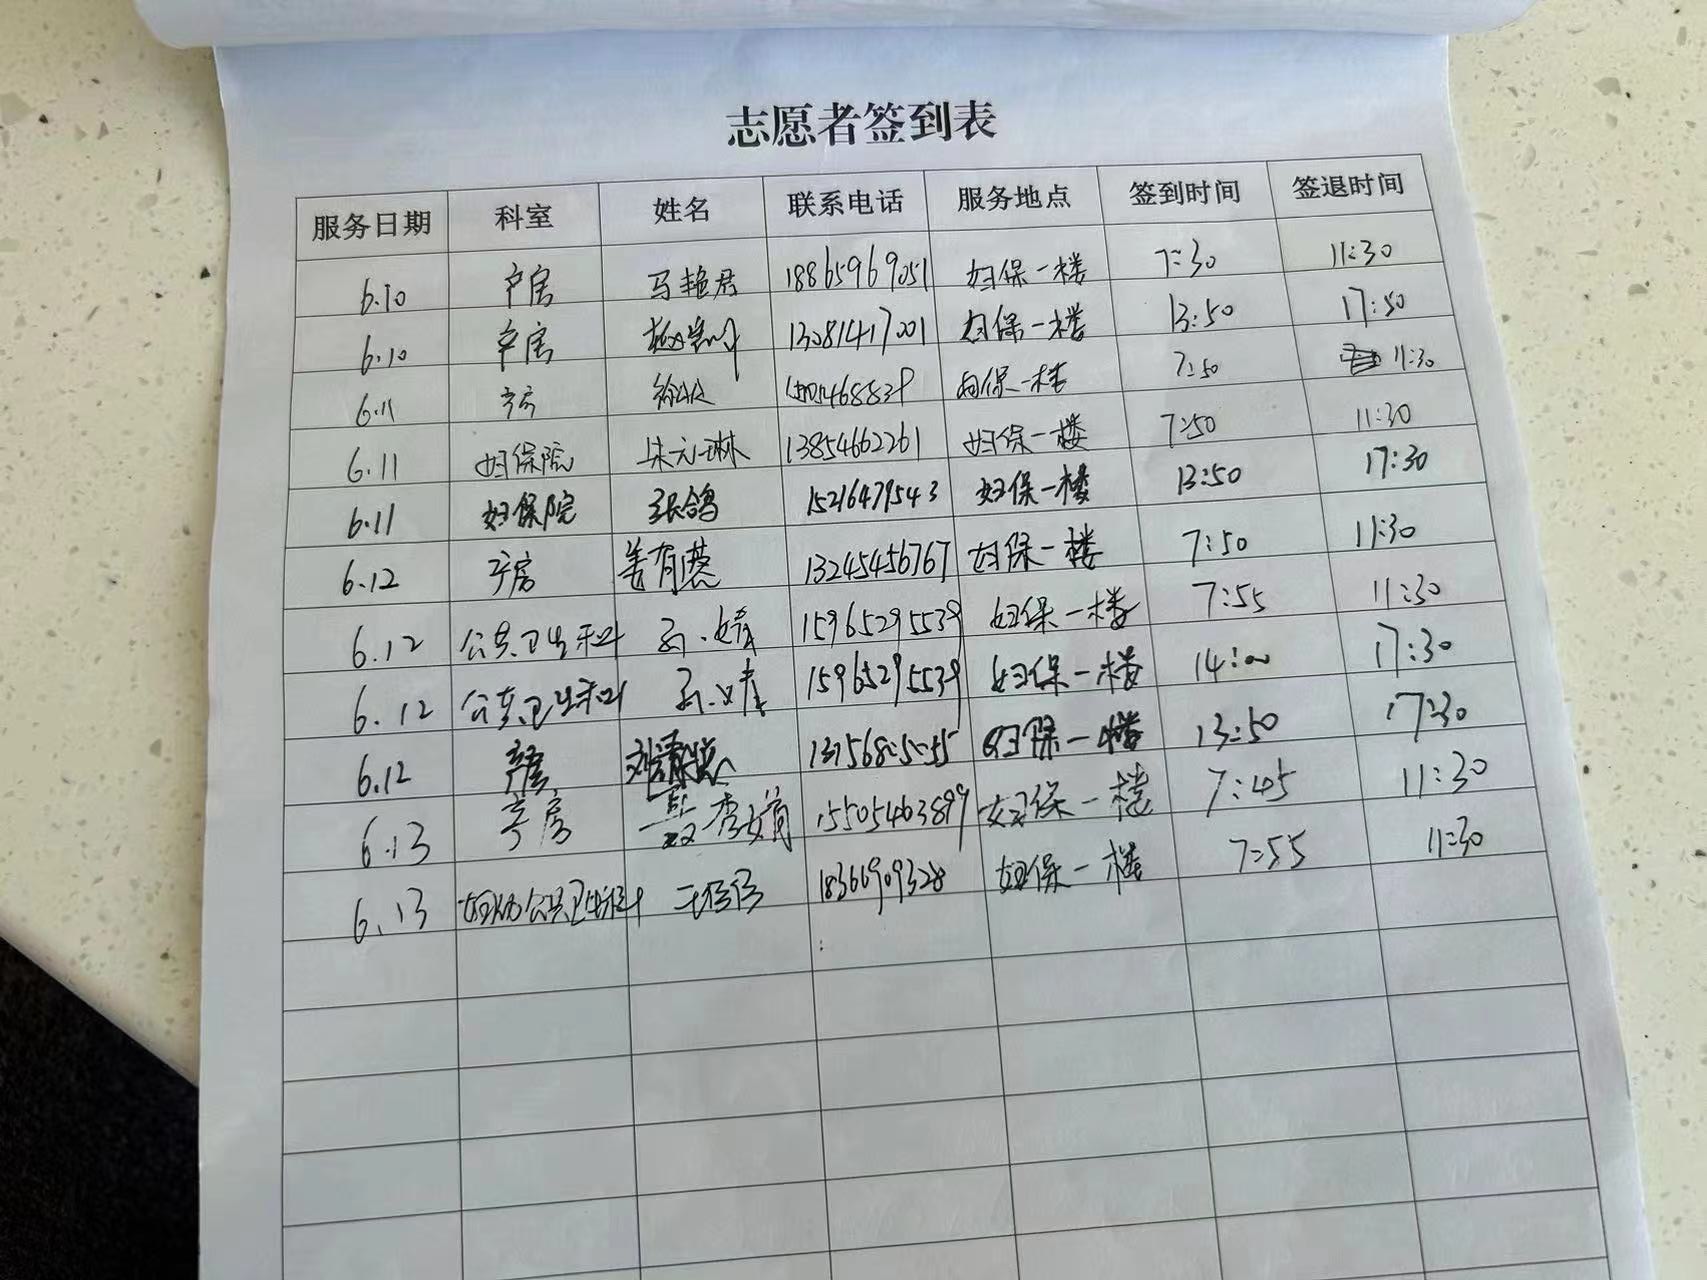 志愿者签到表
服务日期 科室 姓名 联系电话 服务地点 签到时间 签退时间
6.10 产房 马艳君 18865969051 妇保一楼 7:30 11:30
6.10 产房 13081417001 妇保一楼 13:50 17:30
6.11 产房 妇保一楼 7:50 11:30
6.11 妇保院 朱元琳 13854662261 妇保一楼 7:50 11:30
6.11 妇保院 张鸽 15216479543 妇保一楼 13:50 17:30
6.12 产房 姜有慧 13245456767 妇保一楼 7:50 11:30
6.12 公共卫生科 孙婧 15965295539 妇保一楼 7:55 11:30
6.12 公共卫生科 孙婧 15965295539 妇保一楼 14:00 17:30
6.12 产房 妇保一楼 13:50 17:30
6.13 产房 聂秀娟 15505463899 妇保一楼 7:45 11:30
6.13 妇幼公共卫生科 18366909328 妇保一楼 7:55 11:30